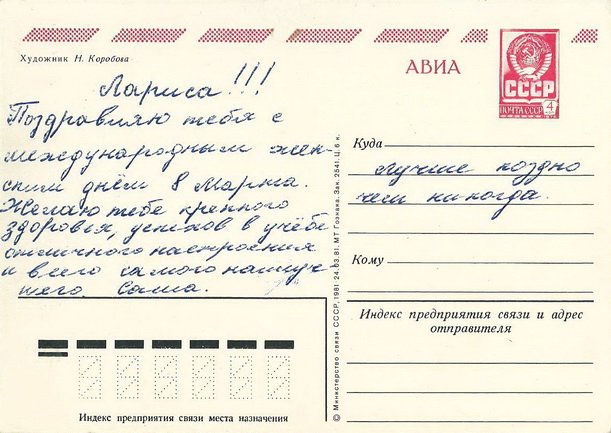 Художник Н. Коробова
АВИА
СССР
ПОЧТА СССР 4
Лариса!!!
Поздравляю тебя с
международным жен-
ским днём 8 Марта.
Желаю тебе крепкого
здоровья, успехов в учёбе
отличного настроения
и всего самого наилуч
шего. Саша.
Куда
лучше поздно
чем никогда.
Кому
Индекс предприятия связи и адрес
отправителя
Индекс предприятия связи места назначения
© Министерство связи СССР, 1981. 24.03.81. МТ Гознака. Зак. 2541. Ц. 6 к.